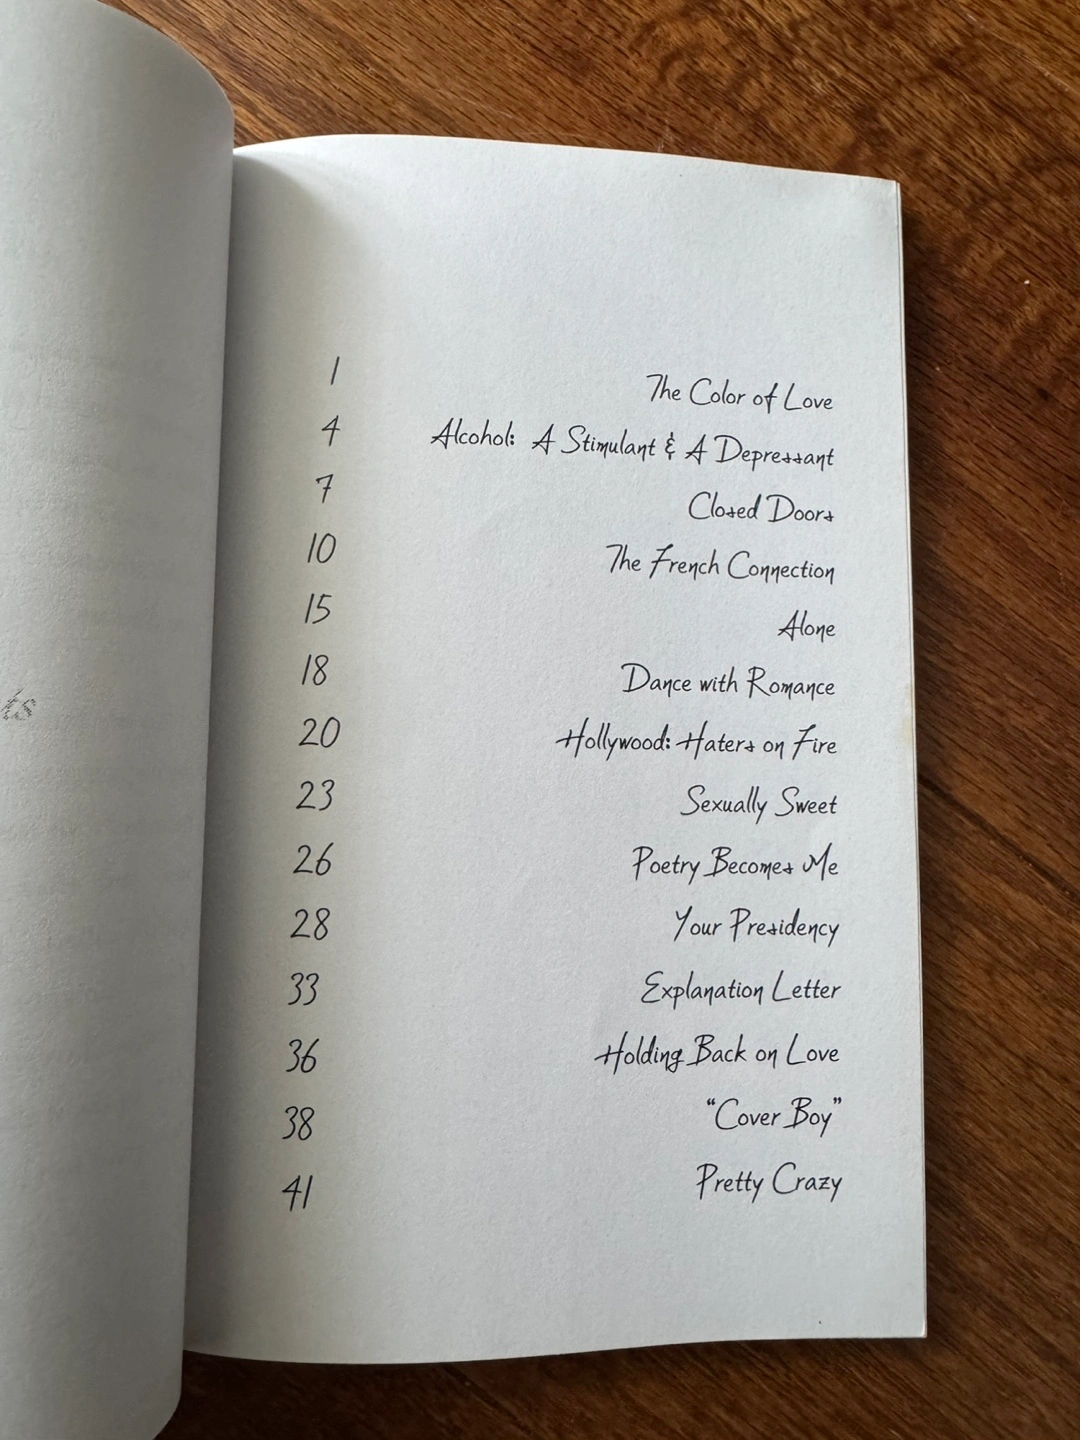 ts
1 The Color of Love
4 Alcohol: A Stimulant & A Depressant
7 Closed Doors
10 The French Connection
15 Alone
18 Dance with Romance
20 Hollywood: Haters on Fire
23 Sexually Sweet
26 Poetry Becomes Me
28 Your Presidency
33 Explanation Letter
36 Holding Back on Love
38 “Cover Boy”
41 Pretty Crazy